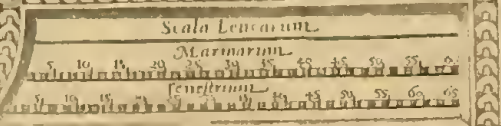 Scala Leucarum
Marinarum
5 10 15 20 25 30 35 40 45 50 55 60
Terrestrium
5 10 15 40 45 50 55 60 65